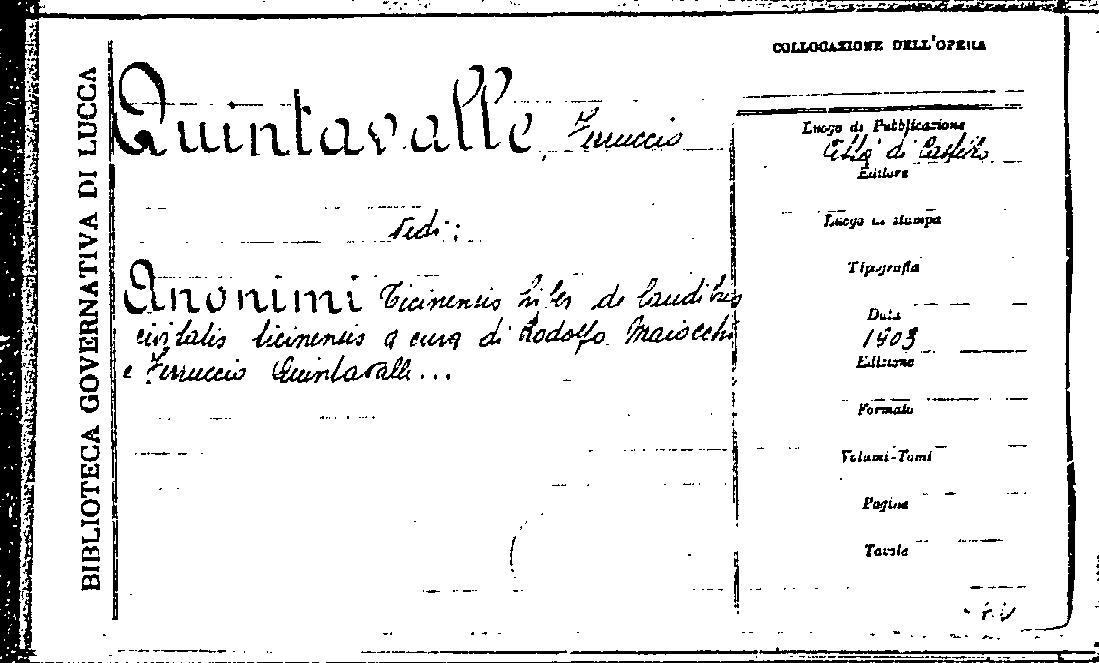 COLLOCAZIONE DELL'OPERA
BIBLIOTECA GOVERNATIVA DI LUCCA
Quintavalle, Ferruccio
Vedi:
Anonimi Ticinensis liber de laudibus
civitatis ticinensis a cura di Rodolfo Maiocchi
e Ferruccio Quintavalle...
Luogo di Pubblicazione
Città di Castello
Editore
Luogo di stampa
Tipografia
Data
1903
Edizione
Formato
Volumi-Tomi
Pagine
Tavole